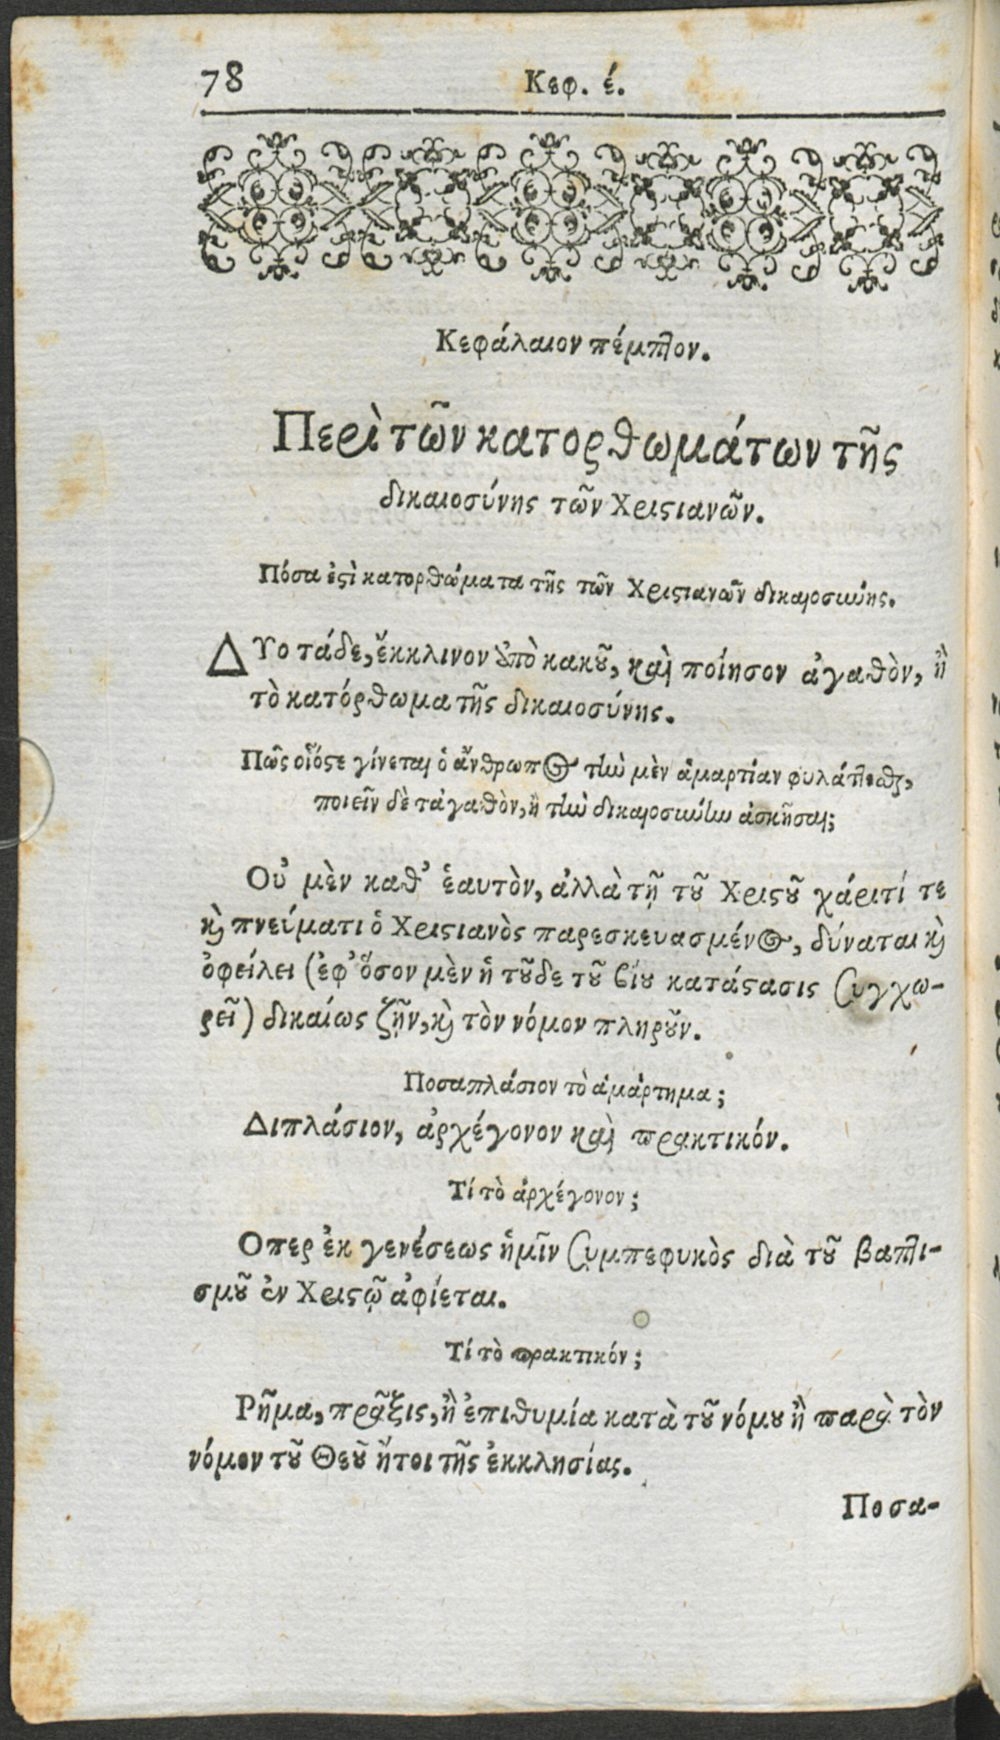 78 Κεφ. έ.
Κεφάλαιον πέμπτον.
Περὶ τῶν κατορθωμάτων τῆς
δικαιοσύνης τῶν Χριςιανῶν.
Πόσα ἐςὶ κατορθώματα τῆς τῶν Χριςιανῶν δικαιοσύνης.
ΔΥο τάδε, ἔκκλινον ἀπὸ κακοῦ, καὶ ποίησον ἀγαθὸν, ἢ
τὸ κατόρθωμα τῆς δικαιοσύνης.
Πῶς οἷόςε γίνεται ὁ ἄνθρωπος τὴν μὲν ἁμαρτίαν φυλάττεσθαι,
ποιεῖν δὲ τἀγαθὸν, ἢ τὴν δικαιοσύνην ἀσκῆσαι;
Οὐ μὲν καθ᾽ ἑαυτὸν, ἀλλὰ τῇ τοῦ Χριςοῦ χάριτί τε
καὶ πνεύματι ὁ Χριςιανὸς παρεσκευασμένος, δύναται καὶ
ὀφείλει (ἐφ᾽ ὅσον μὲν ἡ τοῦδε τοῦ βίου κατάςασις συγχω-
ρεῖ) δικαίως ζῇν, καὶ τὸν νόμον πληροῦν.
Ποσαπλάσιον τὸ ἁμάρτημα;
Διπλάσιον, ἀρχέγονον καὶ πρακτικόν.
Τί τὸ ἀρχέγονον;
Οπερ ἐκ γενέσεως ἡμῖν συμπεφυκὸς διὰ τοῦ βαπτι-
σμοῦ ἐν Χριςῷ ἀφίεται.
Τί τὸ πρακτικόν;
Ρῆμα, πρᾶξις, ἢ ἐπιθυμία κατὰ τοῦ νόμου ἢ παρὰ τὸν
νόμον τοῦ Θεοῦ ἤτοι τῆς ἐκκλησίας.
Ποσα-